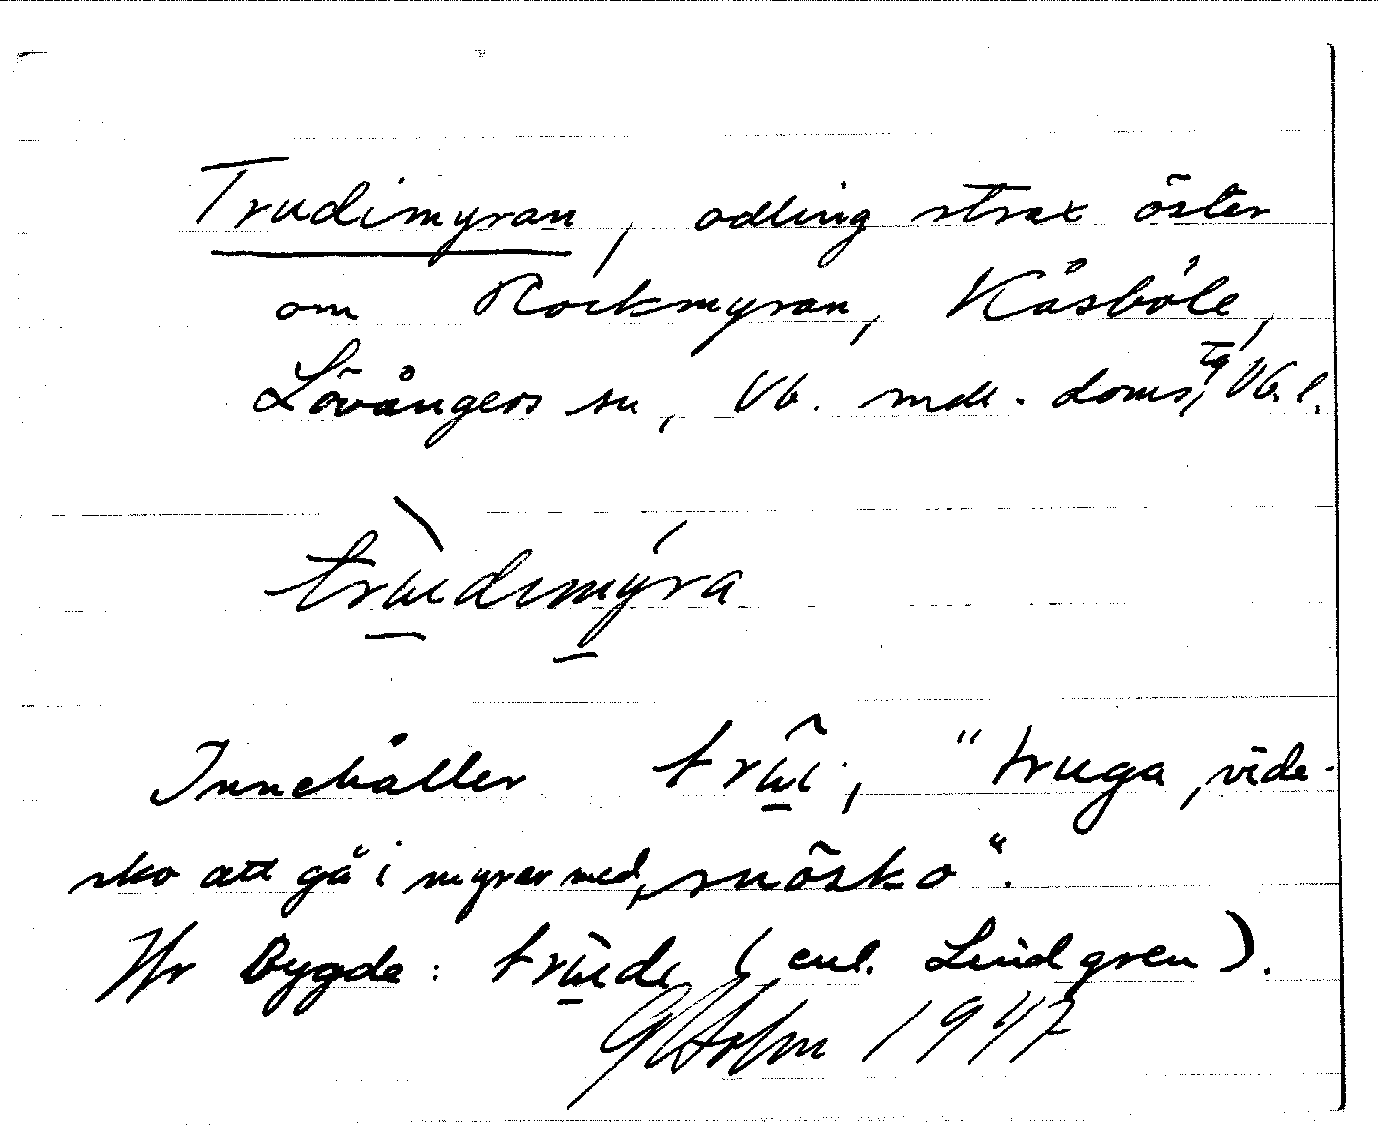 Trudimyran, odling strax öster
om Rockmyran, Kåsböle,
Lövångers sn, Vb. mell. doms, tg Vb. l.
trùdimýra
Innehåller trûi, "truga, vide-
sko att gå i myrar med, snösko".
Jfr Bygde: trùde (enl. Lindgren).
GHolm 1947